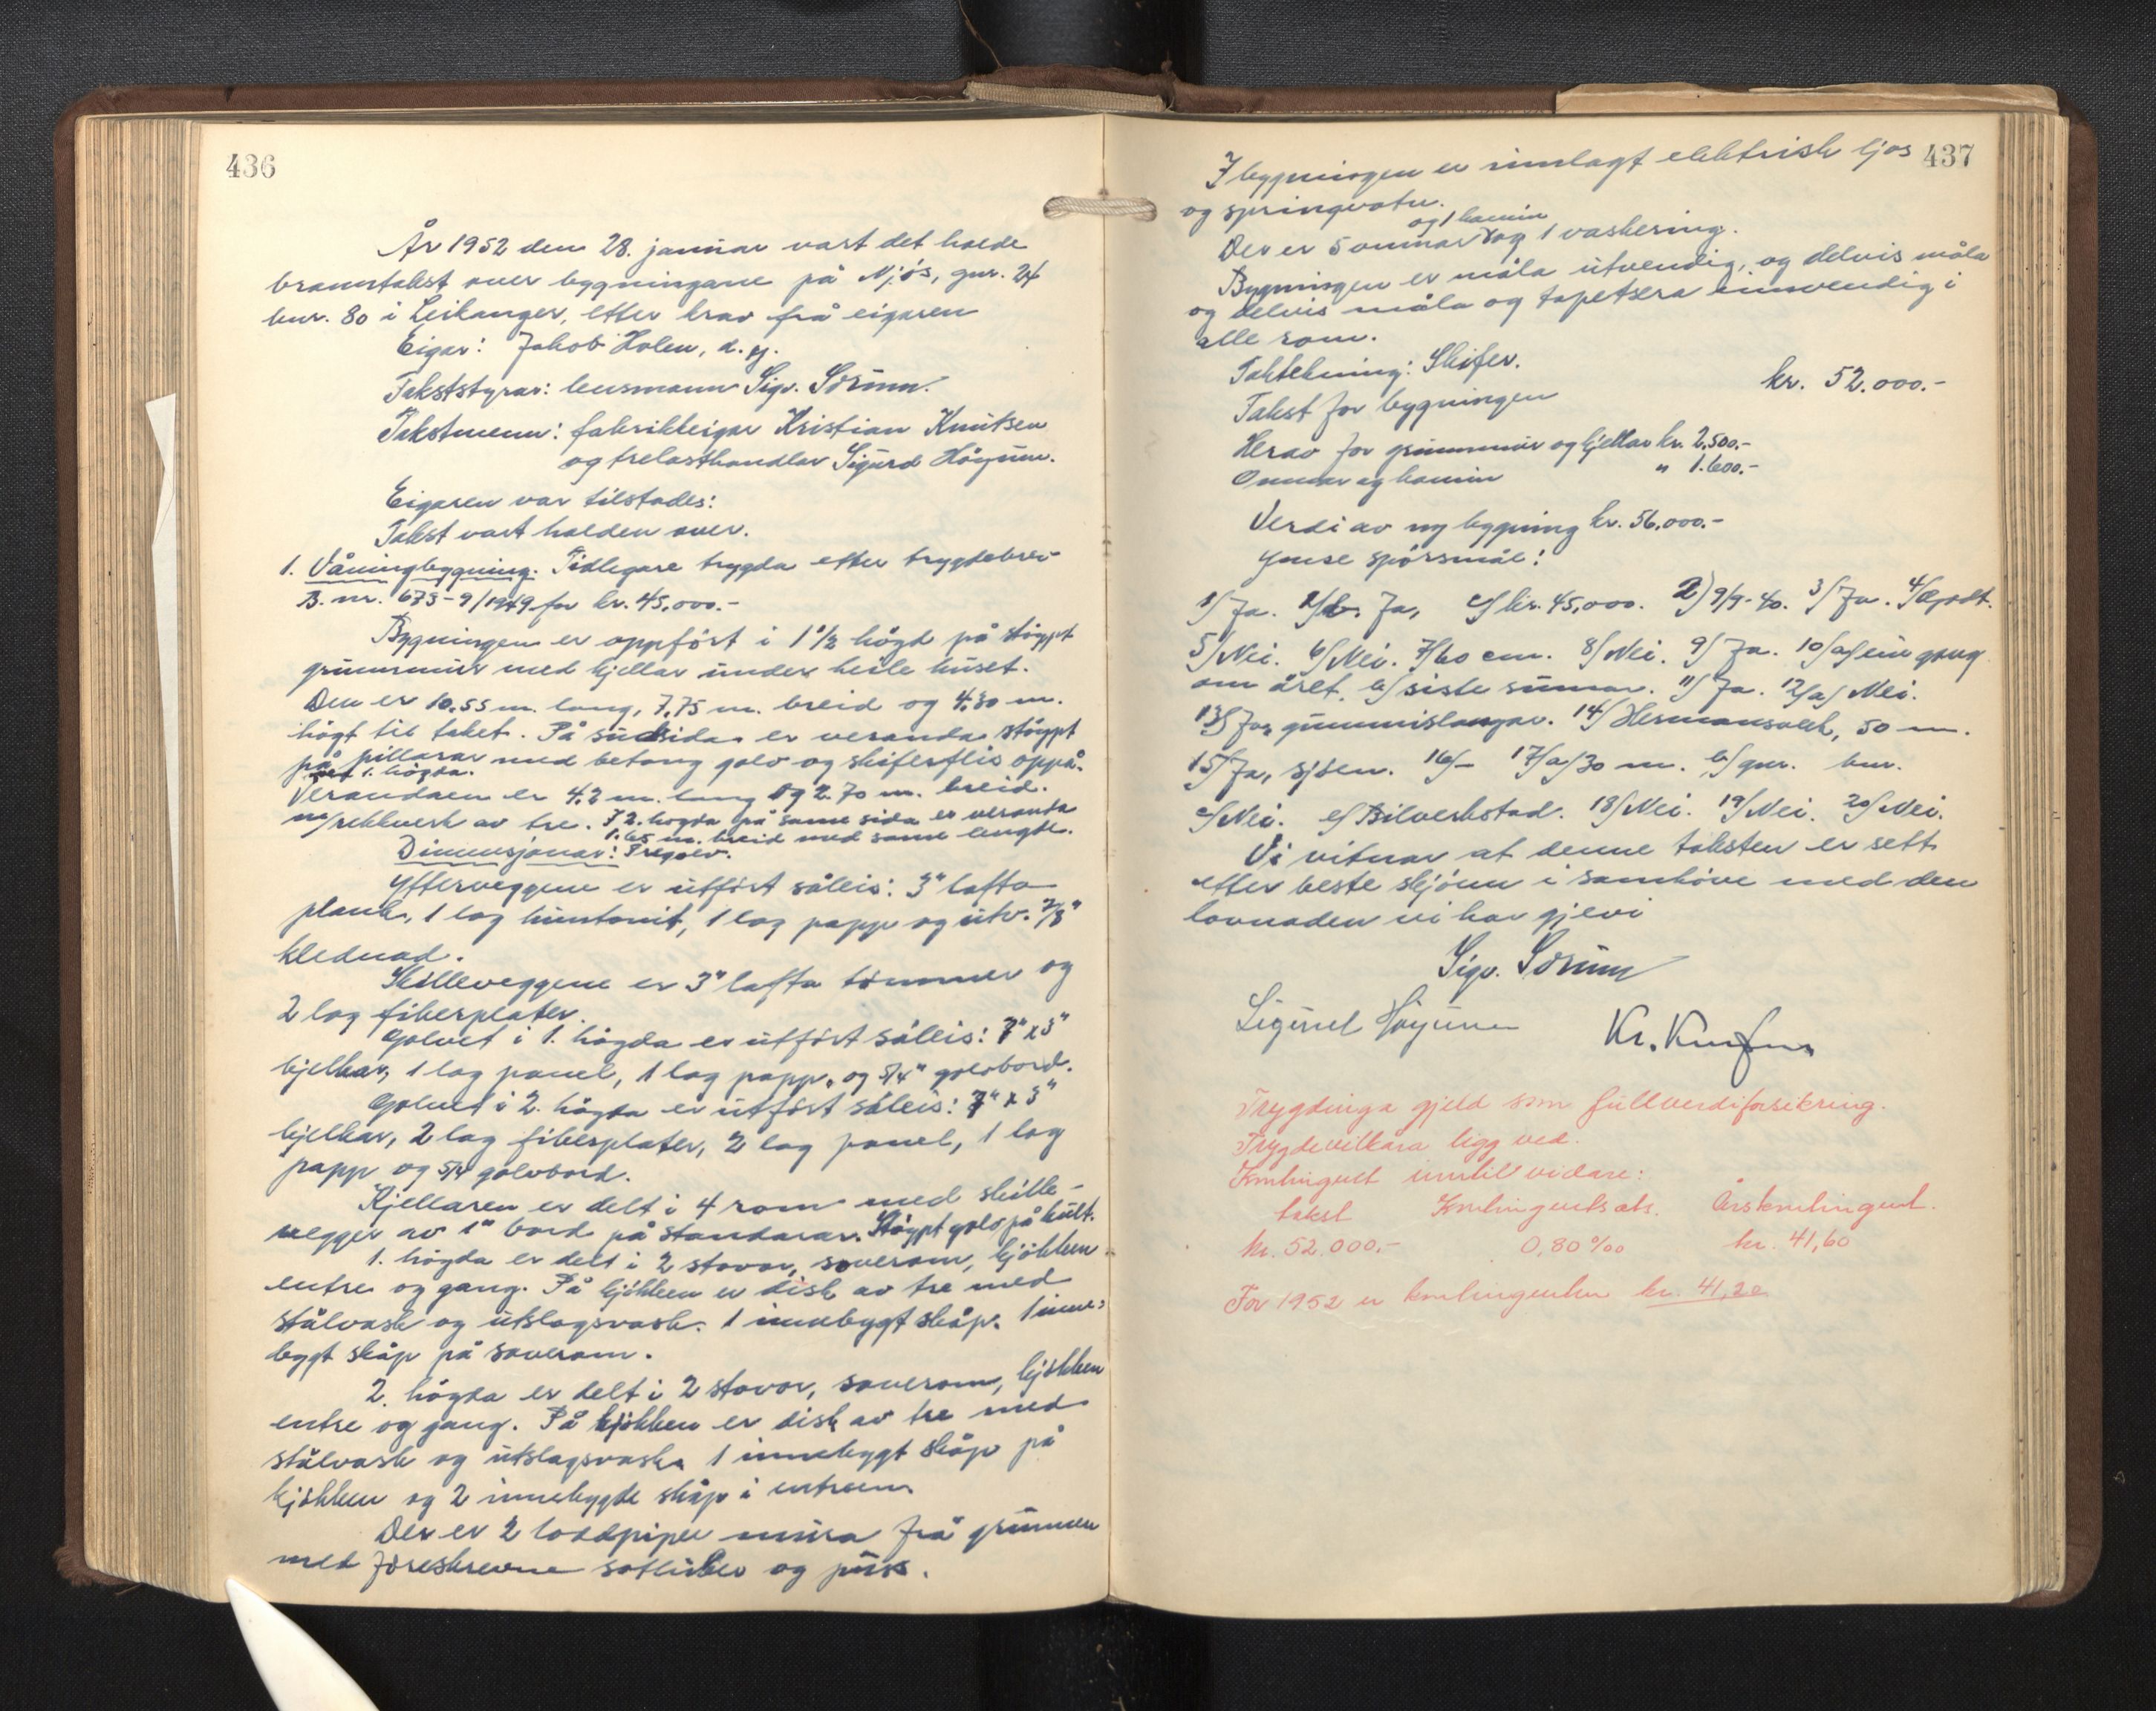 436
År 1952 den 28. januar vart det halde
branntakst over bygningane på Njøs, gnr. 24
bnr. 80 i Leikanger, etter krav frå eigaren
Eigar: Jakob Holen, d. y.
Takststyrar: lensmann Sigv. Sørum.
Takstmenn: fabrikkeigar Kristian Knutsen
og trelasthandlar Sigurd Høyum.
Eigaren var tilstades:
Takst vart halden over.
1. Våningbygning. Tidlegare trygda etter trygdebrev
B. nr. 673-9/1949 for kr. 45,000.-
Bygningen er oppført i 1 1/2 høgd på støypt
grunnmur med kjellar under heile huset.
Den er 10,55 m. lang, 7,75 m. breid og 4,30 m.
høgt til taket. På sudsida er veranda støypt
på pillarar med betong golv og skiferflis oppå.
ved 1. høgda.
Verandaen er 4,2 m. lang og 2.70 m. breid.
m/rekkverk av tre. I 2. høgda på same sida er veranda
1.65 m. breid med same lengde.
Dimensjonar: Tregolv.
Ytterveggene er utført såleis: 3" lafta
plank, 1 lag huntonit, 1 lag papp og utv. 7/8"
klednad.
Skilleveggene er 3" lafta tømmer og
2 lag fiberplater.
Golvet i 1. høgda er utført såleis: 7" x 3"
bjelkar, 1 lag panel, 1 lag papp, og 5/4" golvbord.
Golvet i 2. høgda er utført såleis: 7" x 3"
bjelkar, 2 lag fiberplater, 2 lag panel, 1 lag
papp og 5/4 golvbord.
Kjellaren er delt i 4 rom med skille-
vegger av 1" bord på standarar. Støypt golv på kult.
1. høgda er delt i 2 stovor, soverom, kjøkken
entre og gang. På kjøkken er disk av tre med
stålvask og utslagsvask. 1 innebygt skåp. 1 inne-
bygt skåp på soverom.
2. høgda er delt i 2 stovor, soverom, kjøkken
entre og gang. På kjøkken er disk av tre med
stålvask og utslagsvask 1 innebygt skåp på
kjøkken og 2 innebygde skåp i entreen
Der er 2 loddpiper mura frå grunnen
med foreskrevne sotluker og puss.
437
I bygningen er innlagt elektrisk ljos
og springvatn.
og 1 kamin
Der er 5 omnar og 1 vaskering.
Bygningen er måla utvendig, og delvis måla
og delvis måla og tapetsera innvendig i
alle rom.
Taktekning: Skifer.
Takst for bygningen kr. 52.000.-
Herav for grunnmur og kjellar kr. 2.500.-
Omnar og kamin " 1.600.-
Verdi av ny bygning kr. 56.000.-
Ymse spørsmål:
1/ Ja. b. Ja, c/ kr. 45,000. 2) 9/9-40. 3/ Ja. 4/ Godt.
5/ Nei. 6/ Nei. 7/ 60 cm. 8/ Nei. 9/ Ja. 10/a/ ein gong
om året. b/ siste sumar. 11/ Ja. 12/a/ Nei.
13/ Ja, gummislangar. 14/ Hermansverk, 50 m.
15/ Ja, sjøen. 16/- 17/a/ 30 m. b/ gnr. bnr.
c/ Nei. e/ Bilverkstad. 18/ Nei. 19/ Nei. 20/ Nei.
Vi vitnar at denne taksten er sett
etter beste skjønn i samhøve med den
lovnaden vi har gjevi
Sigv. Sørum
Sigurd Høyum Kr. Knutsen
Trygdinga gjeld som fullverdiforsikring.
Trygdevilkåra ligg ved.
Kontingent inntil vidare:
takst Kontingentsats. Årskontingent.
kr. 52.000.- 0,80 ‰ kr. 41,60
For 1952 er kontingenten kr. 41,20